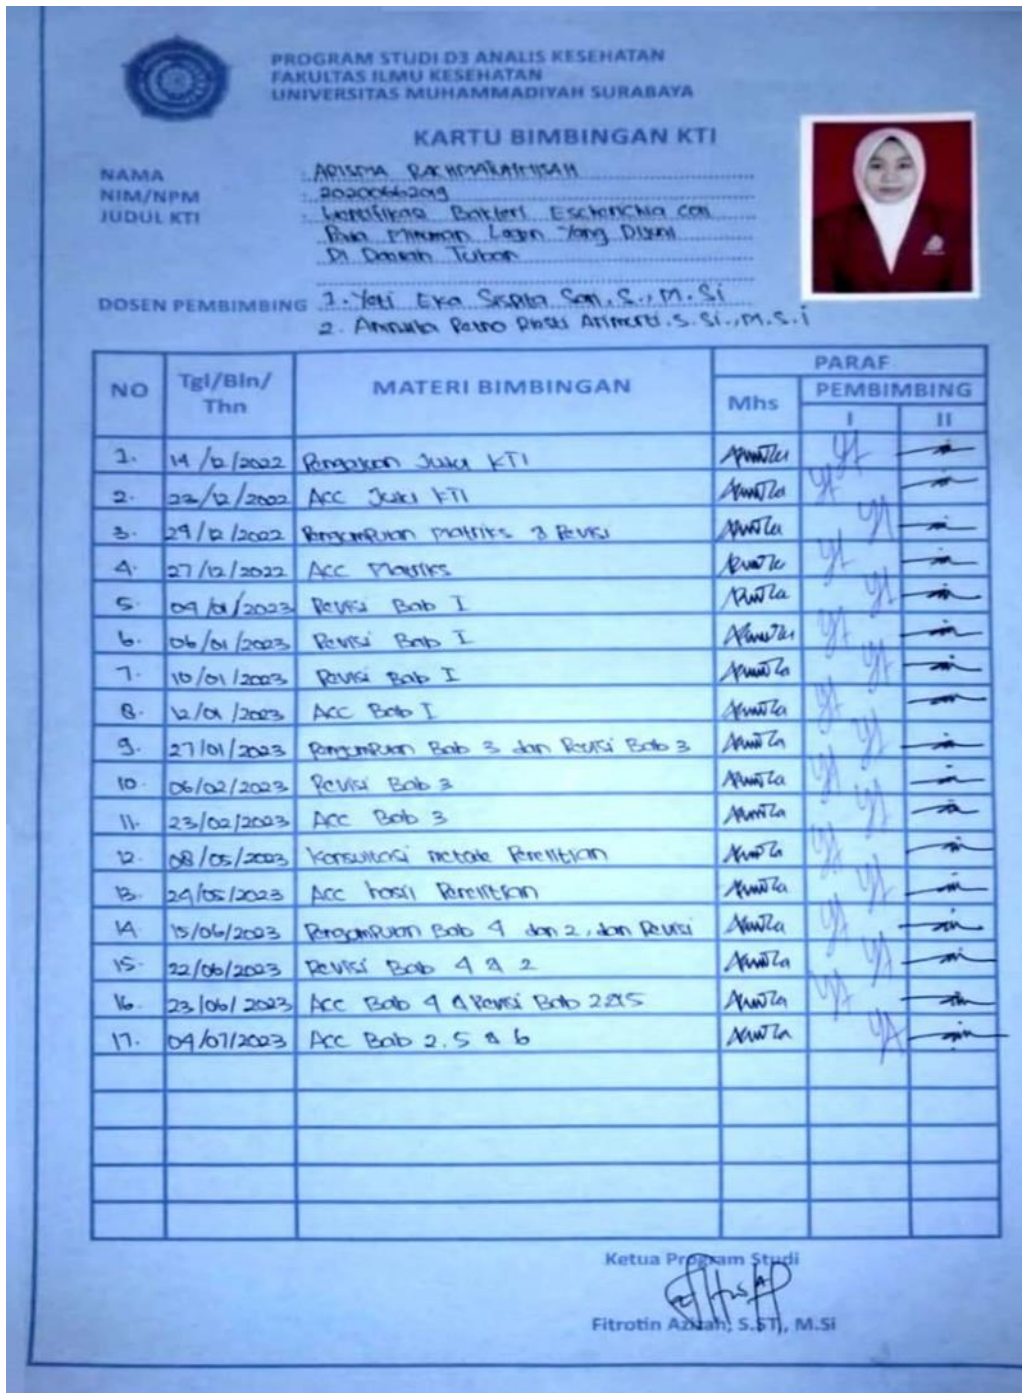 PROGRAM STUDI D3 ANALIS KESEHATAN
FAKULTAS ILMU KESEHATAN
UNIVERSITAS MUHAMMADIYAH SURABAYA
KARTU BIMBINGAN KTI
NAMA : ARISMA
NIM/NPM : 20200662019
JUDUL KTI : Identifikasi Bakteri Escherichia coli
Pada Minuman Legen Yang Dijual
Di Daerah Tuban
DOSEN PEMBIMBING 1. Yeti Eka Sispita Sari, S., M. Si
2. Retno Riasti Arimurti. S. Si., M.S.i
NO Tgl/Bln/Thn MATERI BIMBINGAN PARAF
Mhs PEMBIMBING
I II
1. 14/12/2022 Pengajuan Judul KTI
2. 22/12/2022 Acc Judul KTI
3. 24/12/2022 Pengumpulan Matriks & Revisi
4. 27/12/2022 Acc Matriks
5. 04/01/2023 Revisi Bab I
6. 06/01/2023 Revisi Bab I
7. 10/01/2023 Revisi Bab I
8. 12/01/2023 Acc Bab I
9. 27/01/2023 Pengumpulan Bab 3 dan Revisi Bab 3
10. 06/02/2023 Revisi Bab 3
11. 23/02/2023 Acc Bab 3
12. 08/05/2023 Konsultasi metode Penelitian
13. 24/05/2023 Acc hasil Penelitian
14. 15/06/2023 Pengumpulan Bab 4 dan 2, dan Revisi
15. 22/06/2023 Revisi Bab 4 & 2
16. 23/06/2023 Acc Bab 4 & Revisi Bab 2 & 5
17. 04/07/2023 Acc Bab 2. 5 & 6
Ketua Program Studi
Fitrotin Azizah, S.ST, M.Si